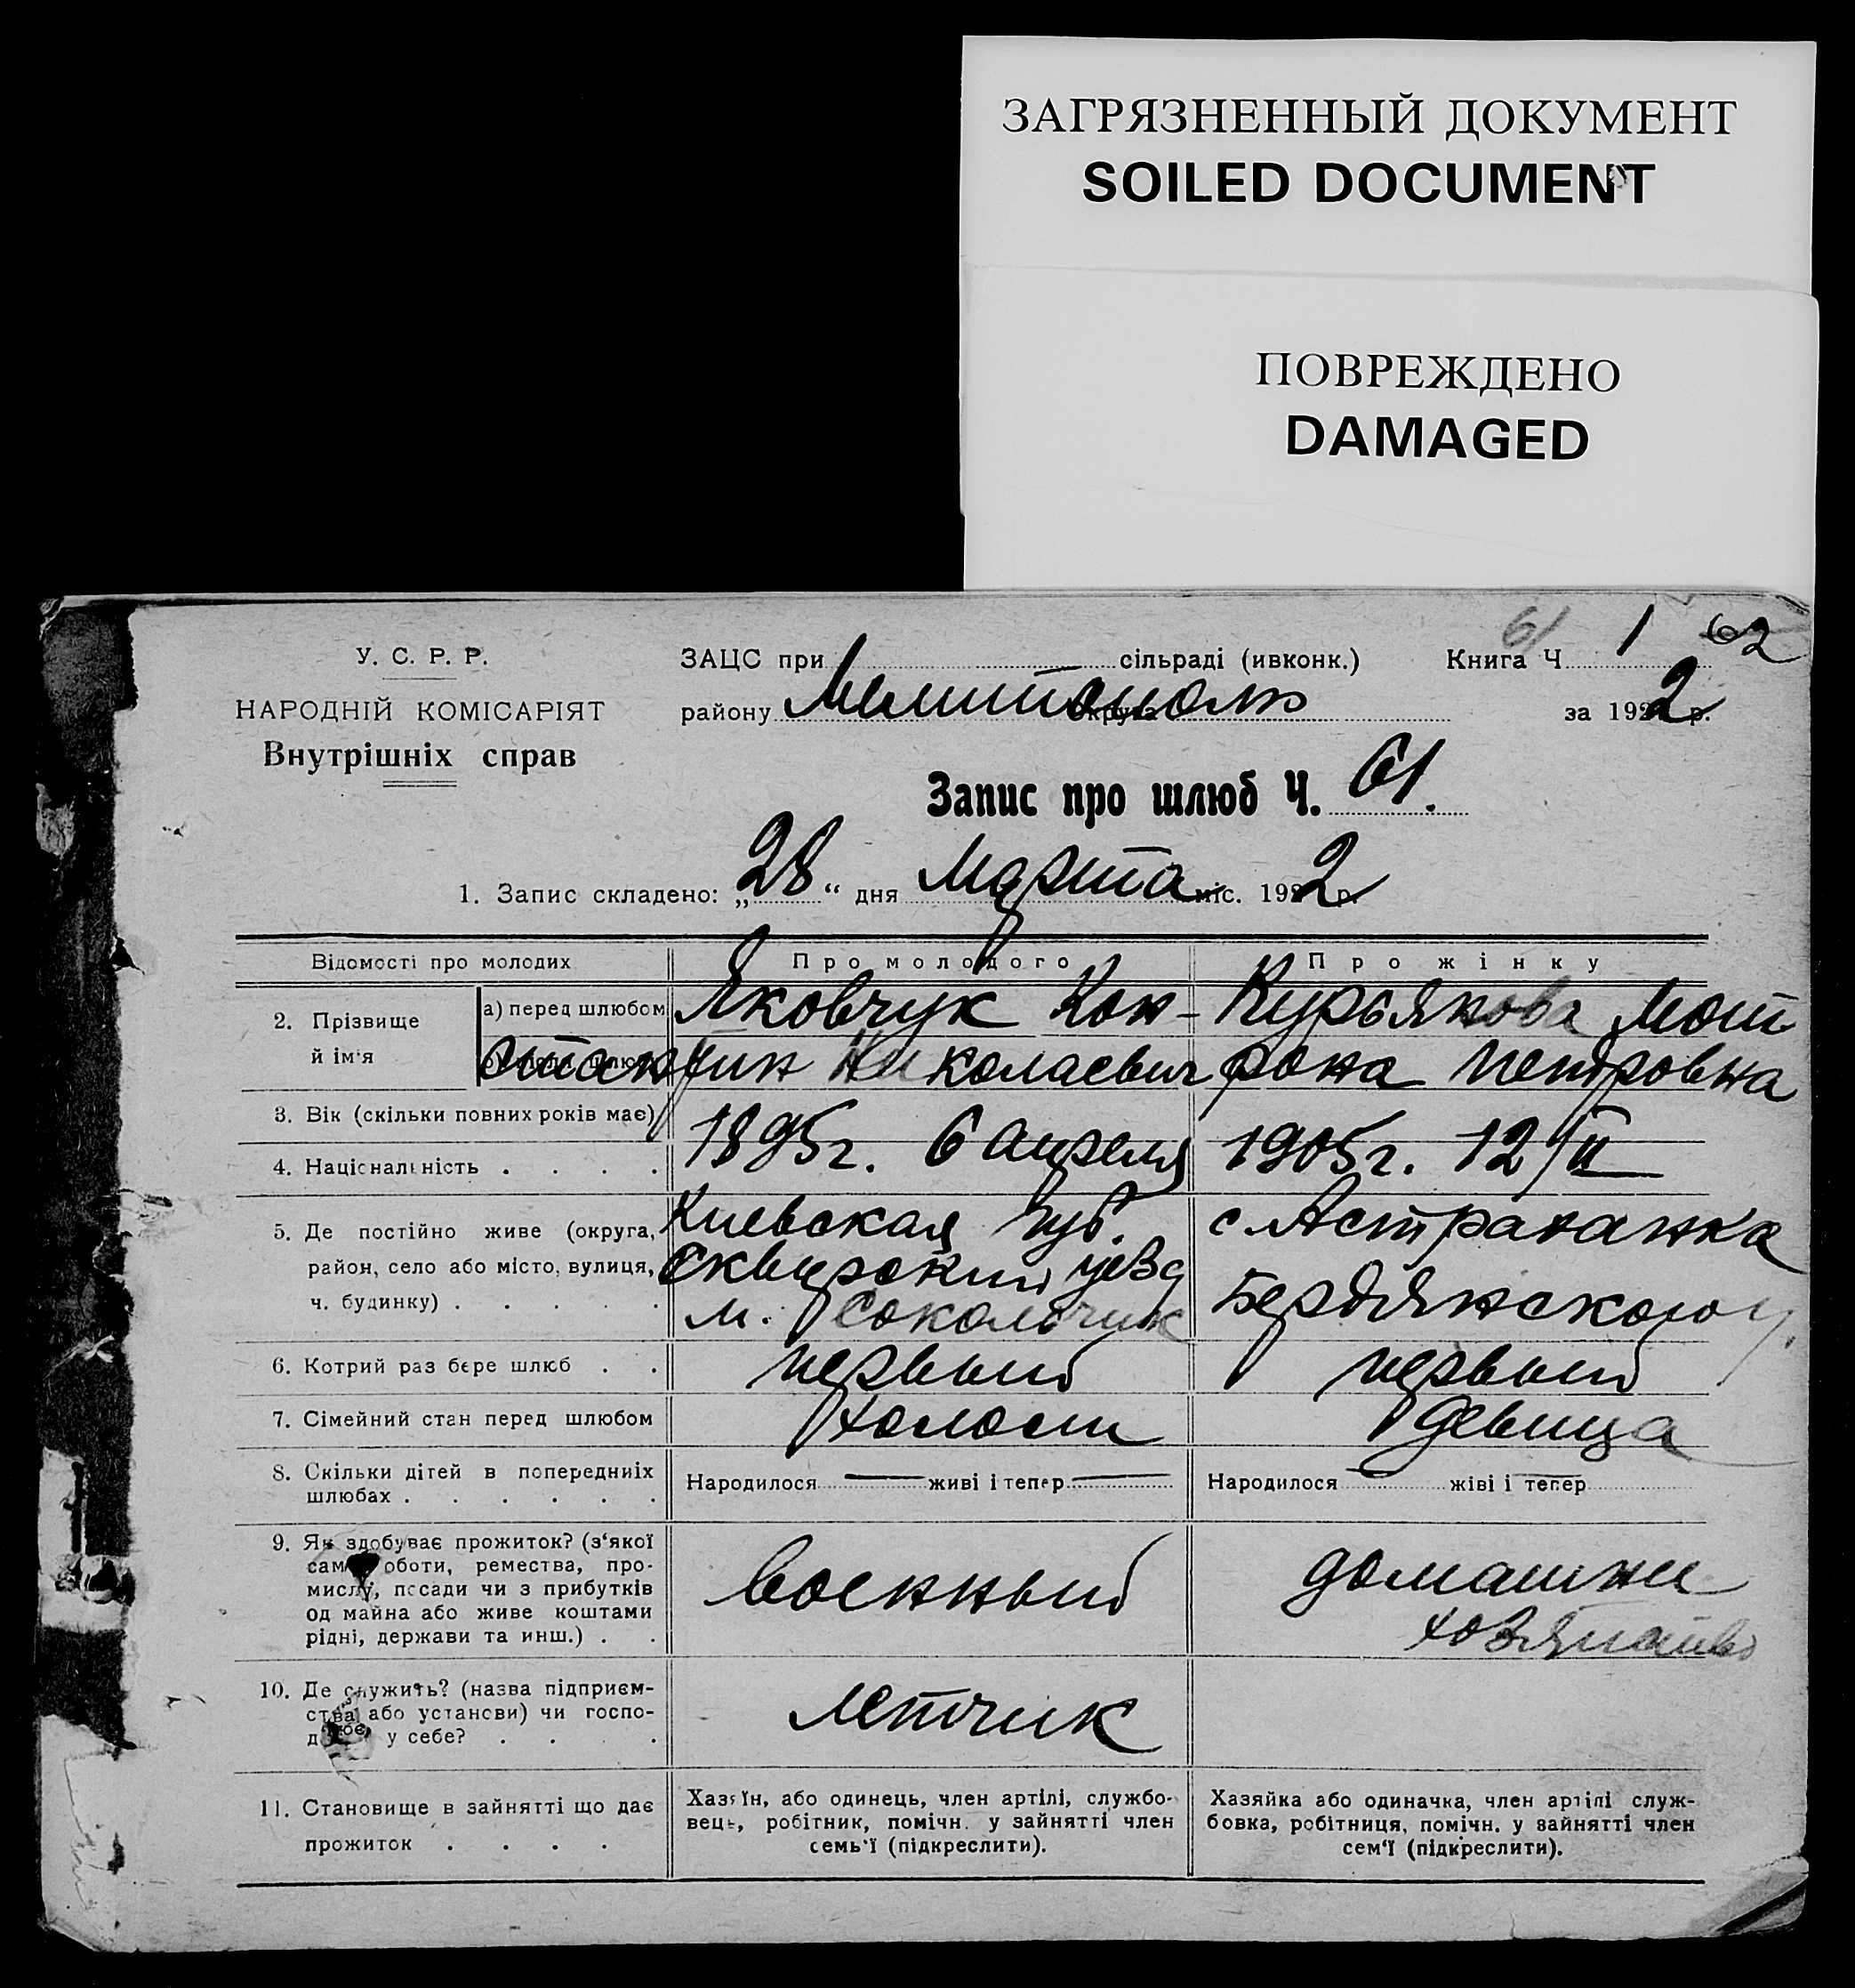 ЗАГРЯЗНЕННЫЙ ДОКУМЕНТ
SOILED DOCUMENT
ПОВРЕЖДЕНО
DAMAGED
61 1 62
У. С. Р. Р.
НАРОДНІЙ КОМІСАРІЯТ
Внутрішніх справ
ЗАЦС при сільраді (ивконк.) Книга Ч
району Мелитополь округа за 1922 р.
Запис про шлюб Ч. 61.
1. Запис складено: „28“ дня Марта міс. 1922 р.
Відомості про молодих Про молодого Про жінку
2. Прізвище й ім'я а) перед шлюбом Яковчук Кон- Курьянова Мот
стантин Николаевич рона Петровна
3. Вік (скільки повних років має) 1895 г. 6 апреля 1905 г. 12/II
4. Національність . . . .
5. Де постійно живе (округа, Киевская губ. с Астраханка
район, село або місто, вулиця, Сквирский уезд Бердянского у.
ч. будинку) . . . . . м. Сокольчик
6. Котрий раз бере шлюб . . первый первый
7. Сімейний стан перед шлюбом холост девица
8. Скільки дітей в попередниіх Народилося живі і тепер Народилося жіві і тепер
шлюбах . . . . . .
9. Як здобуває прожиток? (з'якої военный домашнее
сам оботи, ремества, про- хозяйство
мислу, посади чи з прибутків
од майна або живе коштами
рідні, держави та инш.) . .
10. Де служить? (назва підприєм- летчик
ства або установи) чи госпо-
у себе? . . . .
11. Становище в зайнятті що дає Хазяїн, або одинець, член артілі, службо- Хазяйка або одиначка, член артілі служ-
прожиток . . . . вець, робітник, помічн. у зайнятті член бовка, робітниця, помічн. у зайнятті член
семь'ї (підкреслити). сем'ї (підкреслити).